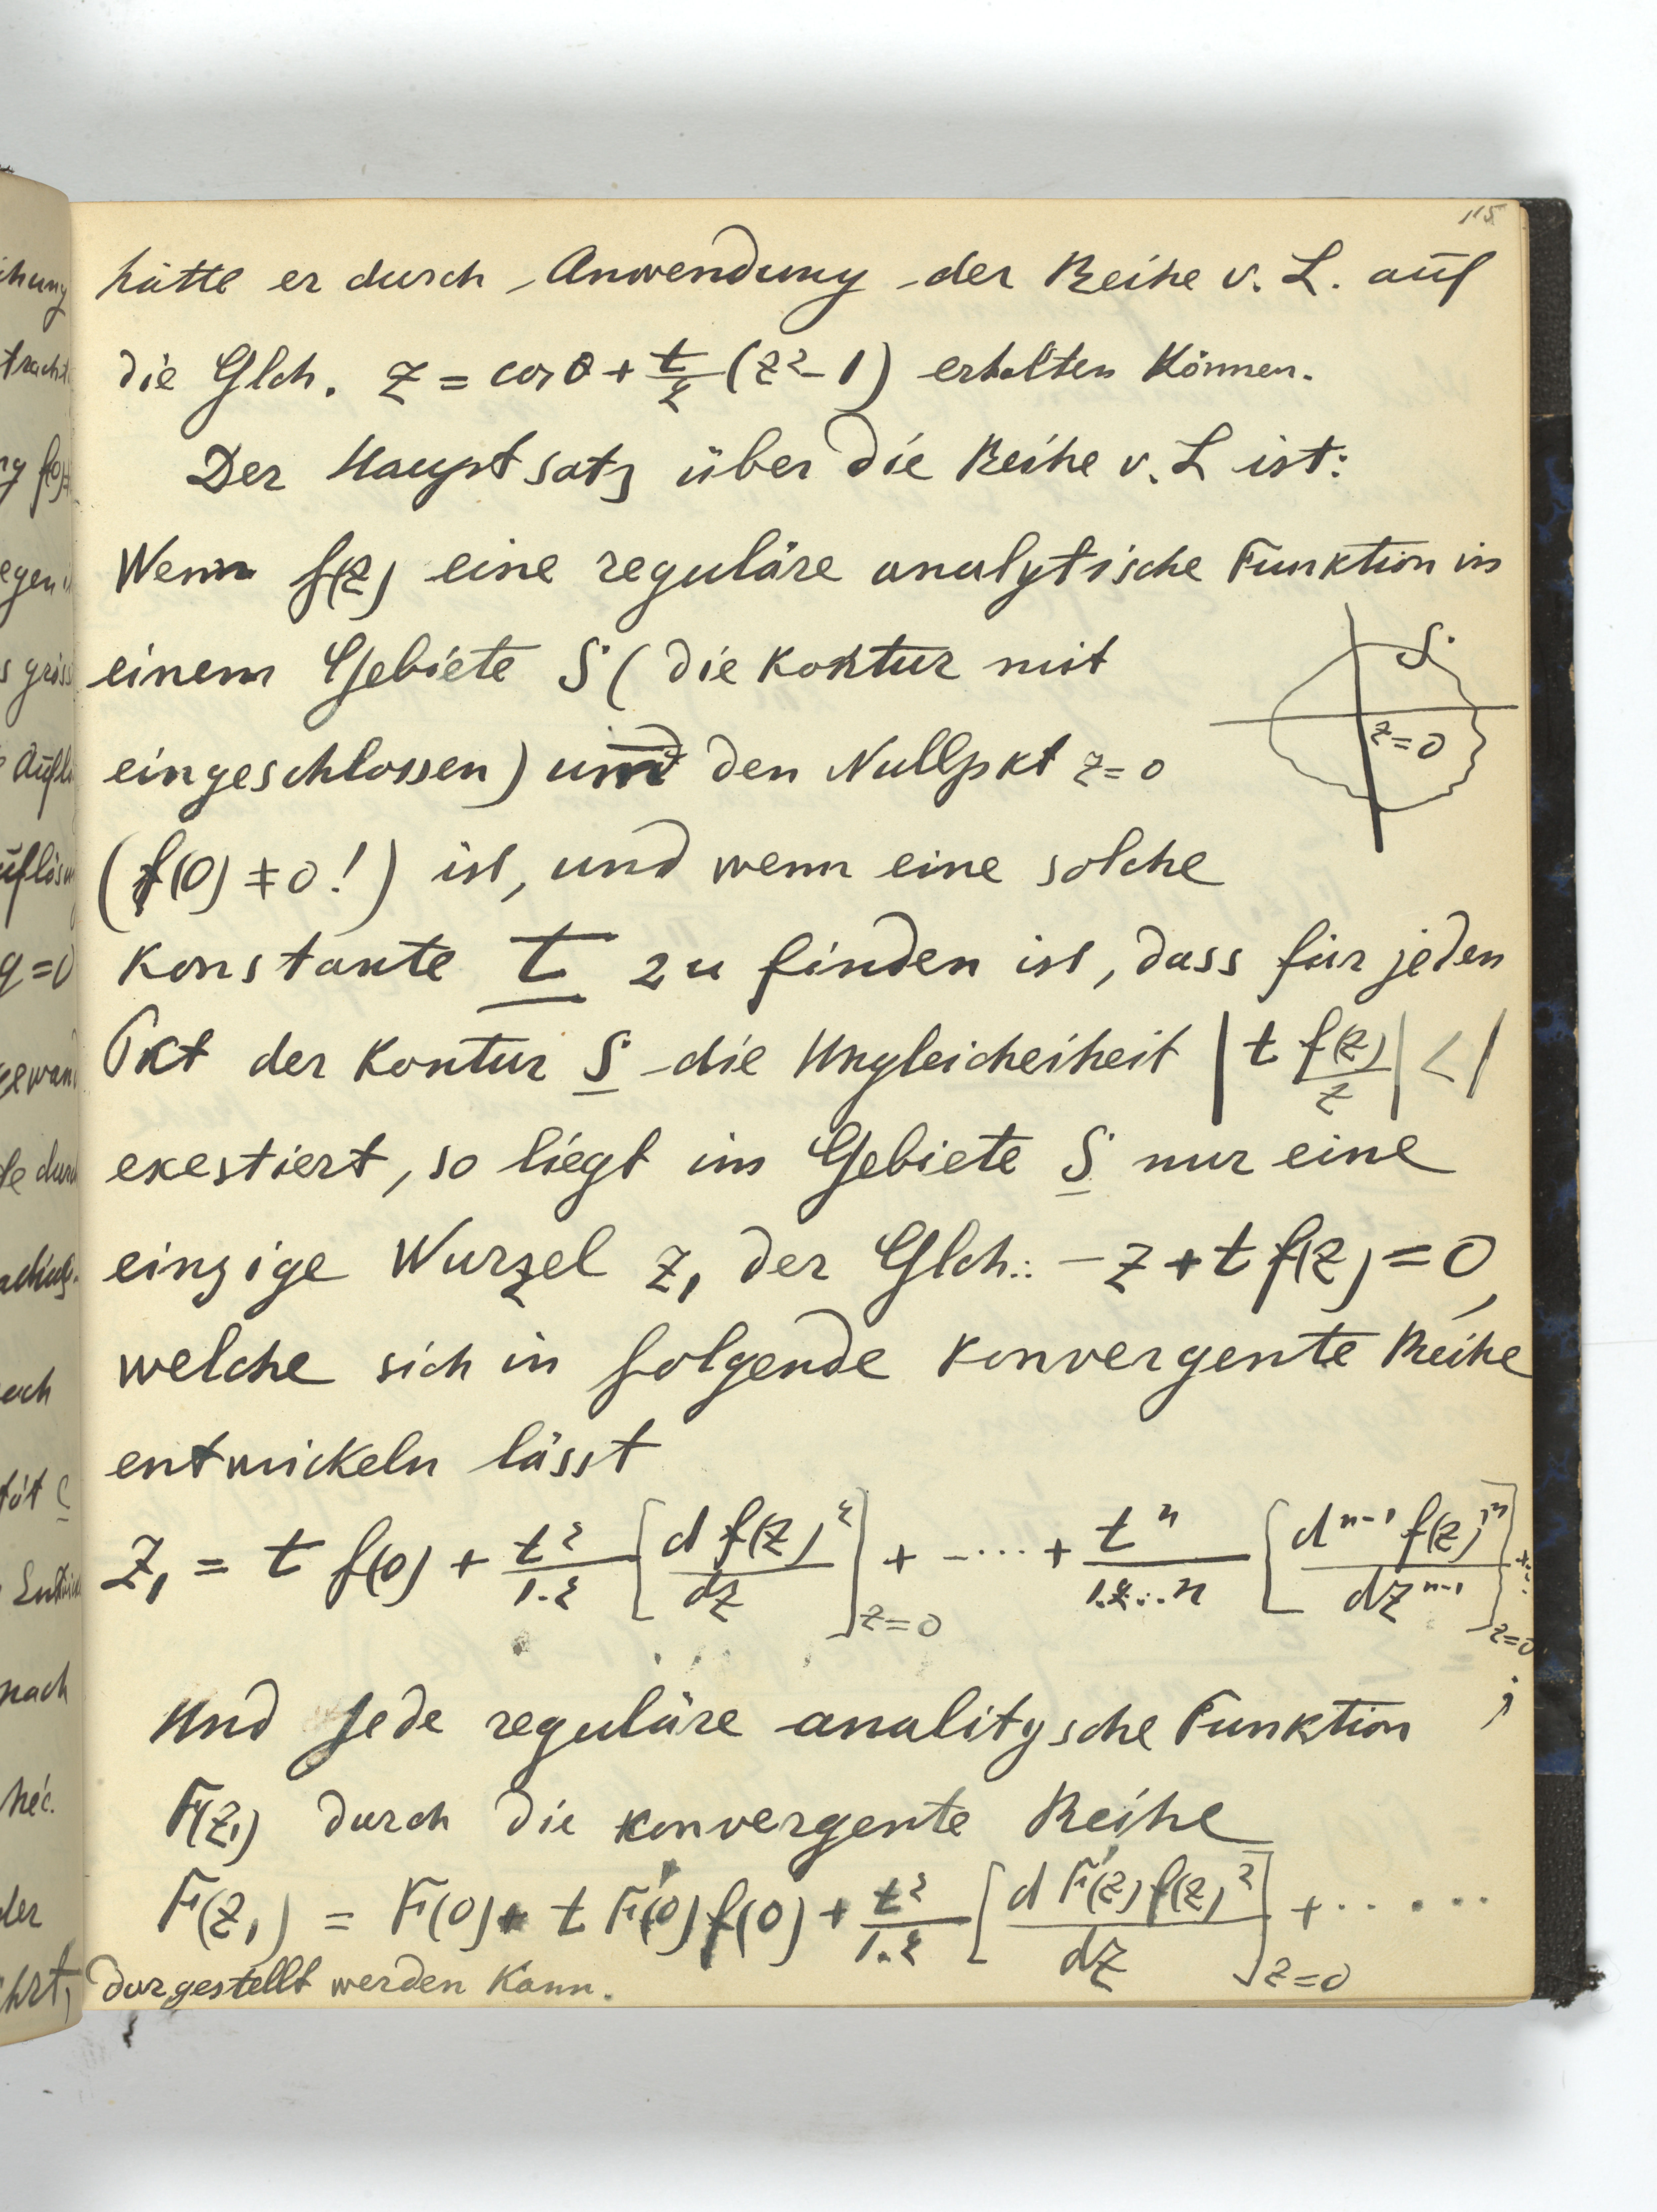 115
hätte er durch Anwendung der Reihe v. L. auf
die Glch. z = cos θ + t/2 (z² - 1) erhalten können.
Der Hauptsatz über die Reihe v. L ist:
Wenn f(z) eine reguläre analytische Funktion in
einem Gebiete S (die Kontur mit
S
eingeschlossen) um den Nullpkt z=0
z=0
(f(0) ≠ 0!) ist, und wenn eine solche
Konstante t zu finden ist, dass für jeden
Pkt der Kontur S die Ungleicheiheit |t f(z)/z| < 1
exestiert, so liegt im Gebiete S nur eine
einzige Wurzel z₁ der Glch.: -z + t f(z) = 0,
welche sich in folgende konvergente Reihe
entwickeln lässt
z₁ = t f(0) + t²/1.2 [d f(z)²/dz]z=0 + - ... + tⁿ/1.2...n [dⁿ⁻¹ f(z)ⁿ/dzⁿ⁻¹]z=0 + ... ;
Und jede reguläre analitysche Funktion
F(z₁) durch die konvergente Reihe
F(z₁) = F(0) + t F'(0) f(0) + t²/1.2 [d F'(z) f(z)²/dz]z=0 + .....
dargestellt werden kann.